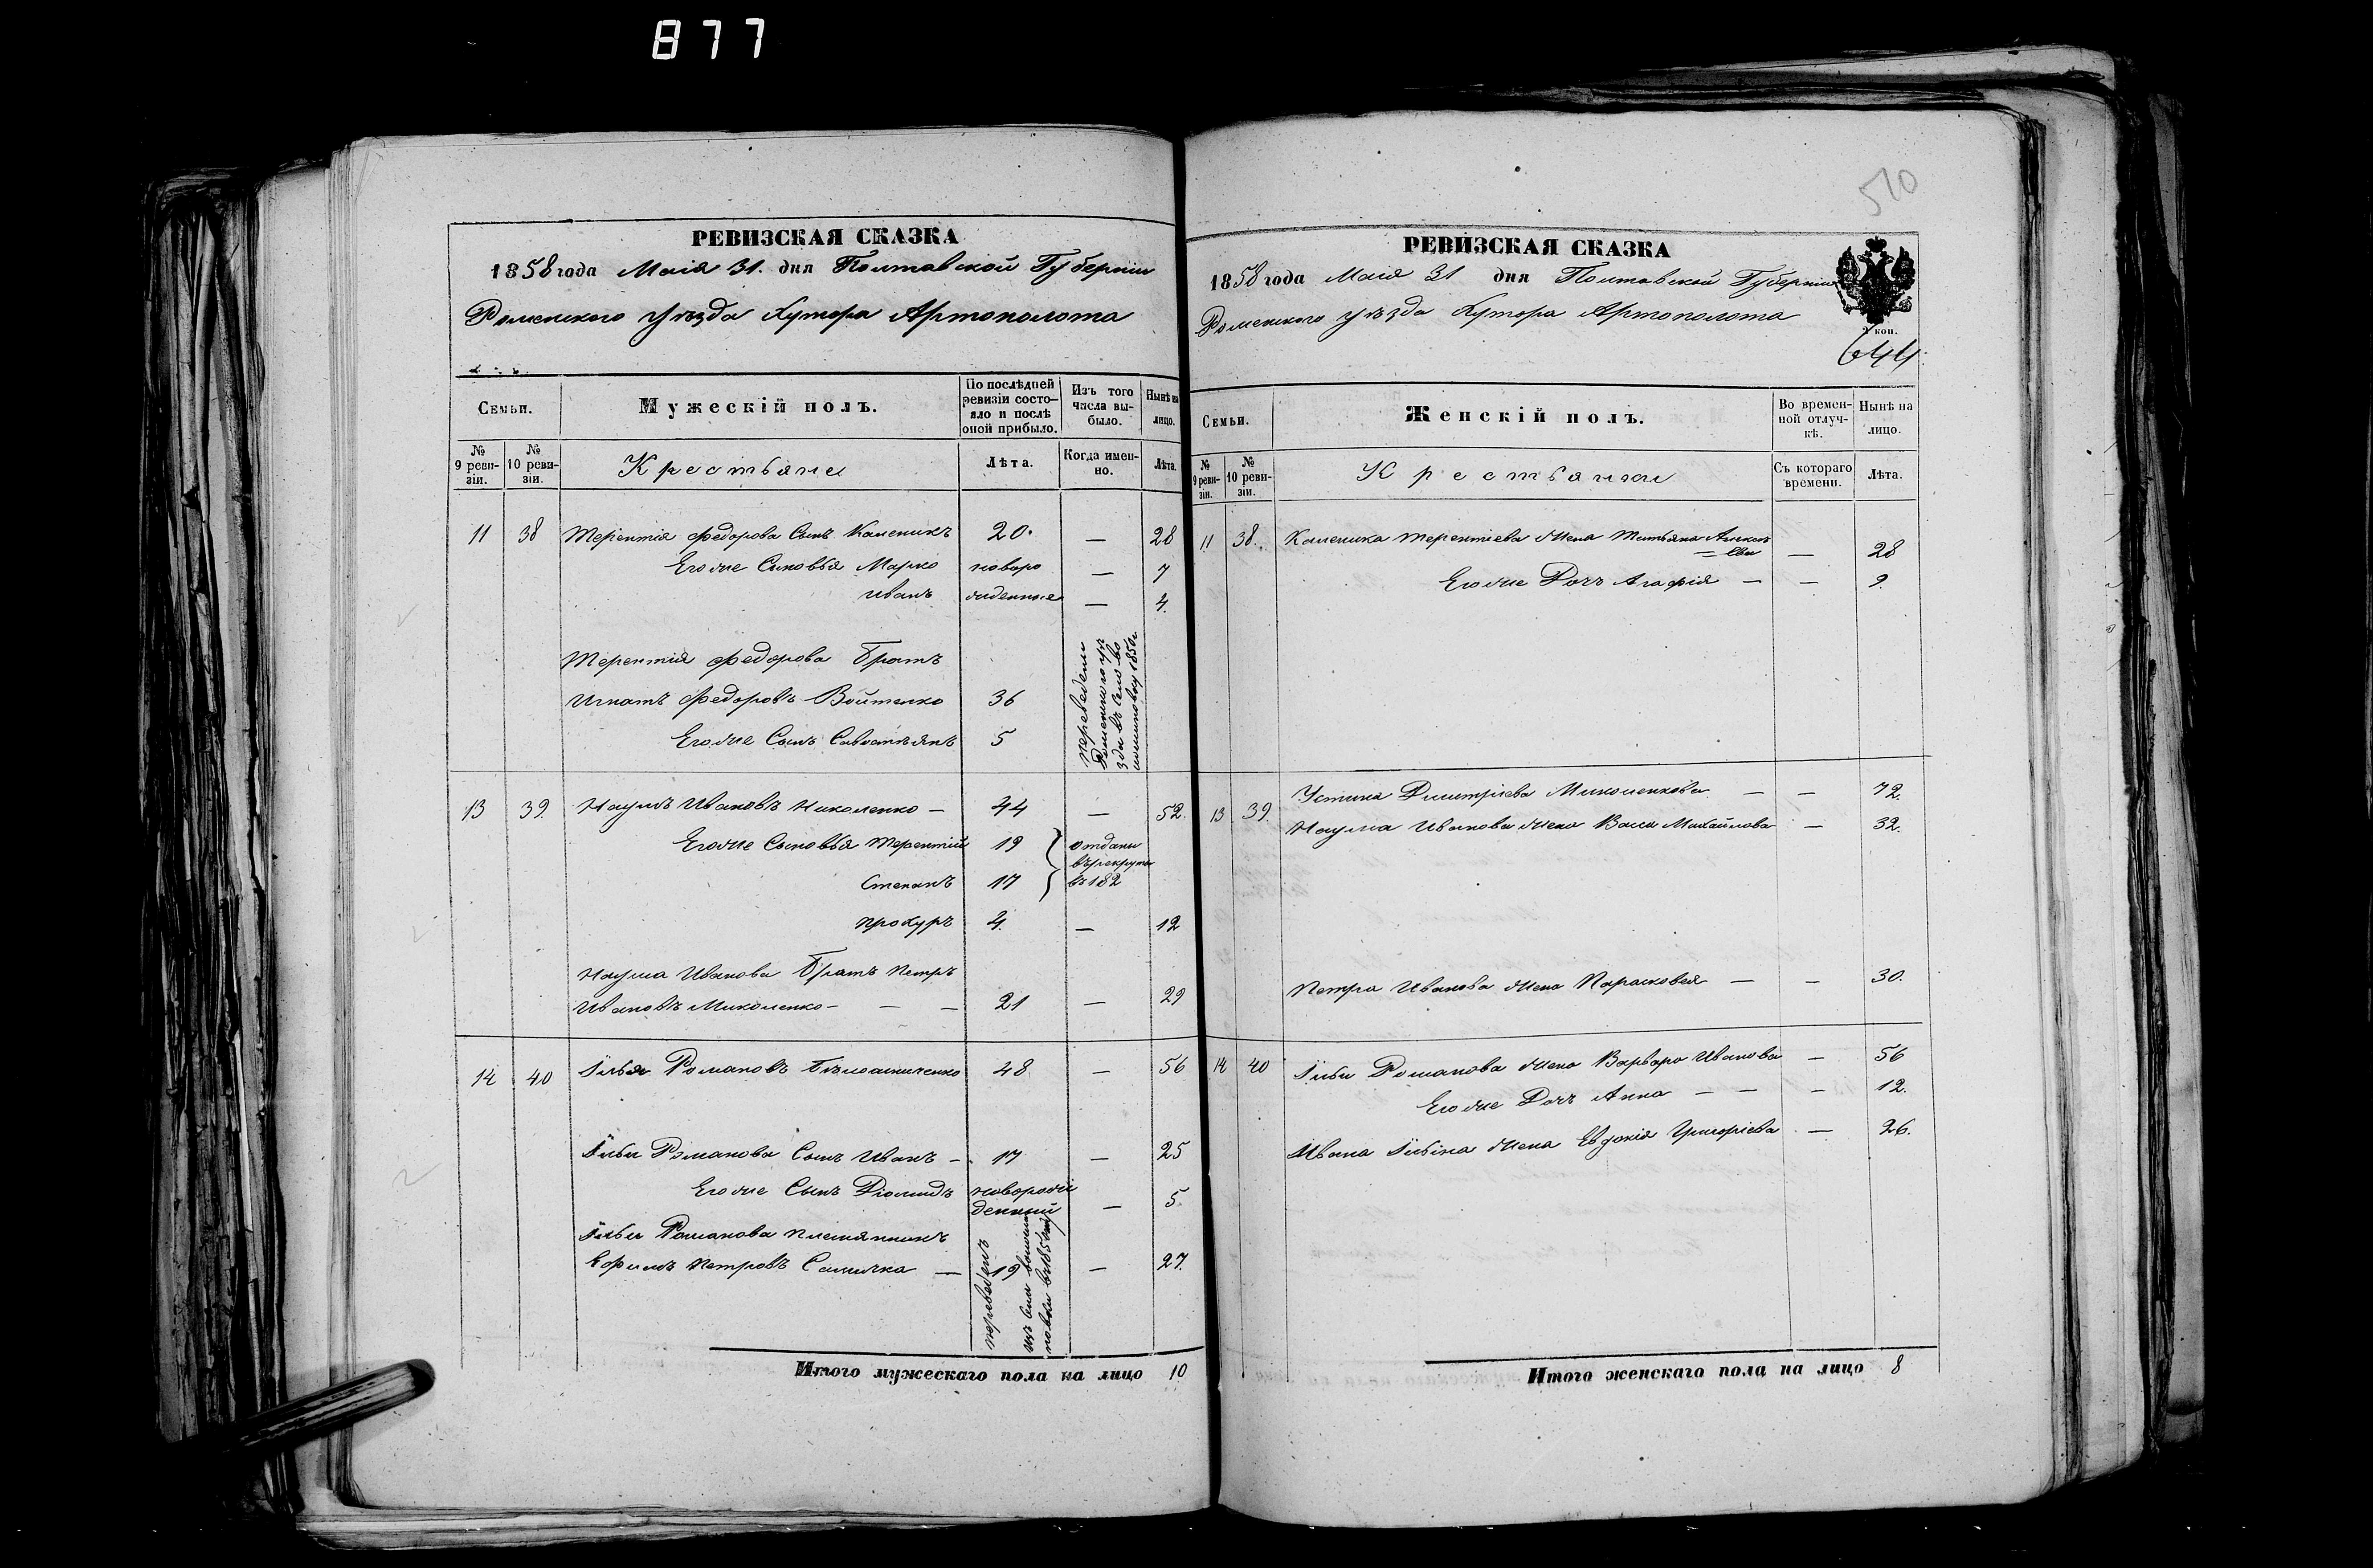 877
РЕВИЗСКАЯ СКАЗКА
1858 года Маія 31. дня Полтавской Губерніи
Роменского уѣзда Хутора Артополота
Семьи.
Мужескій полъ.
По послѣдней ревизіи состояло и послѣ оной прибыло.
Изъ того числа выбыло.
Нынѣ на лицо.
№ 9 ревизіи.
№ 10 ревизіи.
Крестьяне
Лѣта.
Когда именно.
Лѣта.
11 38 Терентія Федорова Сынъ Каленикъ 20. — 28
Егоже Сыновья Марко новоро — 7
Иванъ жденные — 4.
Терентія Федорова Братъ
Игнатъ Федоровъ Войтенко 36
Егоже Сынъ Савостьянъ 5
переведены Роменского уѣзда въ село 1850
13 39. Наумъ Ивановъ Николенко — 44 — 52.
Егоже Сыновья Терентій 19 отданы
Степанъ 17 въ рекруты въ 182
Прохуръ 4. — 12
Наума Иванова Братъ Петръ
Ивановъ Миколенко — — — 21 — 29
14 40 Илья Романовъ 48 — 56
Ильи Романова Сынъ Иванъ — 17 — 25
Егоже Сынъ Діомидъ новорож
денный — 5.
Ильи Романова племянникъ
Ефимъ Петровъ — 19 — 27.
переведенъ изъ села
Итого мужескаго пола на лицо 10
510
РЕВИЗСКАЯ СКАЗКА
1858 года Маія 31 дня Полтавской Губерніи
Роменского уѣзда Хутора Артополота
2 коп.
644
Семьи.
Женскій полъ.
Во временной отлучкѣ.
Нынѣ на лицо.
№ 9 ревизіи.
№ 10 ревизіи.
Крестьянки
Съ котораго времени.
Лѣта.
11 38. Каленика Терентіева жена Татьяна — 28
Егоже Дочь Агафія — — 9.
13 39. Устина Димитріева Миколенкова — — 72.
Наума Иванова жена Михайлова — 32.
Петра Иванова жена Парасковея — — 30.
14 40 Ильи Романова жена Варвара Иванова — 56
Егоже Дочь Анна — — — 12.
Ивана Ильина жена Евдокія Григоріева — 26.
Итого женскаго пола на лицо 8